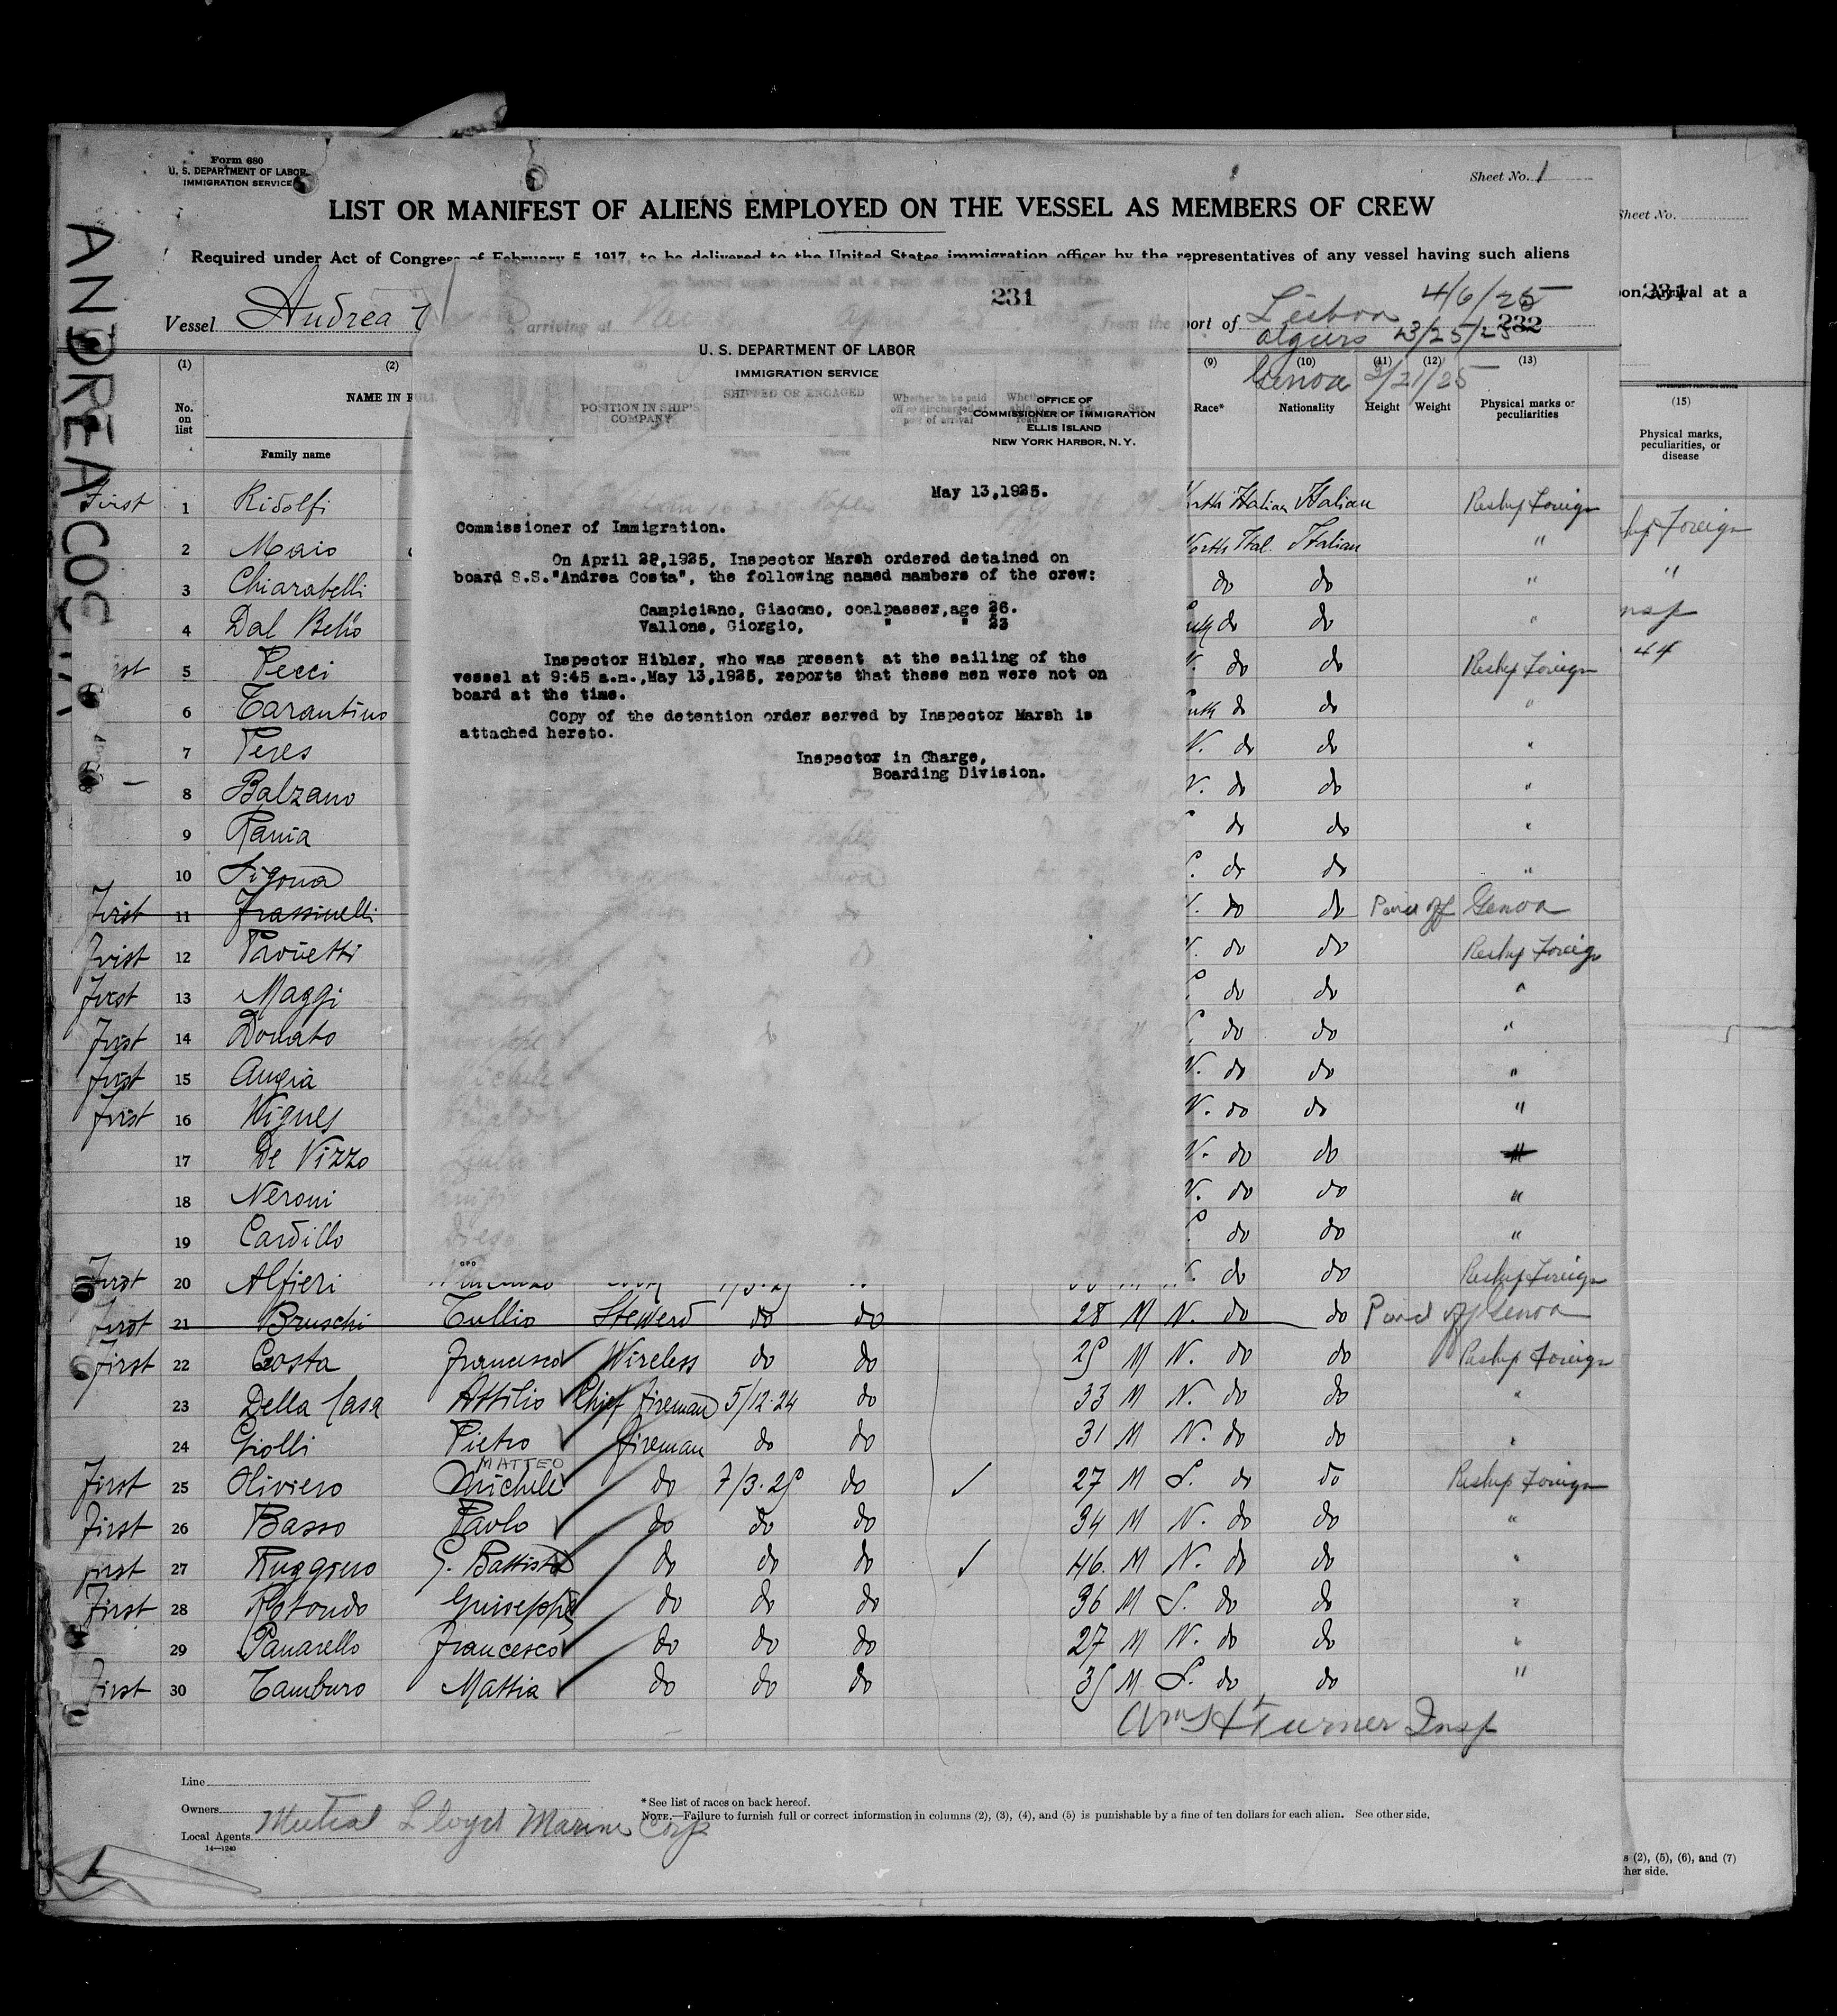 Form 680
U. S. DEPARTMENT OF LABOR
IMMIGRATION SERVICE
Sheet No. 1
Sheet No.
LIST OR MANIFEST OF ALIENS EMPLOYED ON THE VESSEL AS MEMBERS OF CREW
Required under Act of Congress of February 5, 1917, to be delivered to the United States immigration officer by the representatives of any vessel having such aliens
ANDREA COS
Vessel Andrea
arriving at
from the port of Lisbon 4/6/25
Algiers 3/25/25
Genoa 3/21/25
231
232
231
on Arrival at a
U. S. DEPARTMENT OF LABOR
IMMIGRATION SERVICE
OFFICE OF
COMMISSIONER OF IMMIGRATION
ELLIS ISLAND
NEW YORK HARBOR, N. Y.
May 13,1925.
Commissioner of Immigration.
On April 29,1925, Inspector Marsh ordered detained on
board S.S."Andrea Costa", the following named mambers of the crew:
Campiciano, Giacomo, coalpasser,age 26.
Vallone, Giorgio, " " 23
Inspector Hibler, who was present at the sailing of the
vessel at 9:45 a.m.,May 13,1925, reports that these men were not on
board at the time.
Copy of the detention order served by Inspector Marsh is
attached hereto.
Inspector in Charge,
Boarding Division.
(1) (2) (9) (10) (11) (12) (13)
No. on list
NAME IN FULL
Family name
POSITION IN SHIP'S COMPANY
SHIPPED OR ENGAGED
Race* Nationality Height Weight Physical marks or peculiarities
(15)
Physical marks, peculiarities, or disease
First 1 Ridolfi North Italian Italian Reship Foreign
2 Maio North Ital. Italian "
3 Chiarabelli do do "
4 Dal Bello do do "
5 Pecci N. do do Reship Foreign
6 Tarantino do do "
7 Peres N. do do "
8 Balzano N. do do "
9 Rania do do "
10 Sigona do do "
First 11 Frassinelli do do Paid off Genoa
First 12 Paouetti do do Reship Foreign
First 13 Maggi do do "
First 14 Donato do do "
First 15 Augia N. do do "
First 16 Vignes N. do do "
17 De Vizzo N. do do "
18 Neroni N. do do "
19 Cardillo do do "
First 20 Alfieri do do Reship Foreign
First 21 Bruschi Tullio Steward do do 28 M N. do do Paid off Genoa
First 22 Costa Francesco Wireless do do 25 M N. do do Reship Foreign
23 Della Casa Attilio Chief fireman 5/12.24 do 33 M N. do do "
24 Giolli Pietro fireman do do 31 M N. do do "
MATTEO
First 25 Oliviero Michele do 7/3.25 do 27 M S. do do Reship Foreign
First 26 Basso Paolo do do do 34 M N. do do "
First 27 Ruggiero G. Battista do do do 46 M N. do do "
First 28 Rotondo Guiseppe do do do 36 M S. do do "
29 Panarello Francesco do do do 27 M N. do do "
First 30 Tamburo Mattia do do do 35 M S. do do "
Wm H Turner Insp
Line
Owners
Local Agents Mutual Lloyd Marine Corp
14—1240
*See list of races on back hereof.
NOTE.—Failure to furnish full or correct information in columns (2), (3), (4), and (5) is punishable by a fine of ten dollars for each alien. See other side.
(2), (5), (6), and (7)
her side.